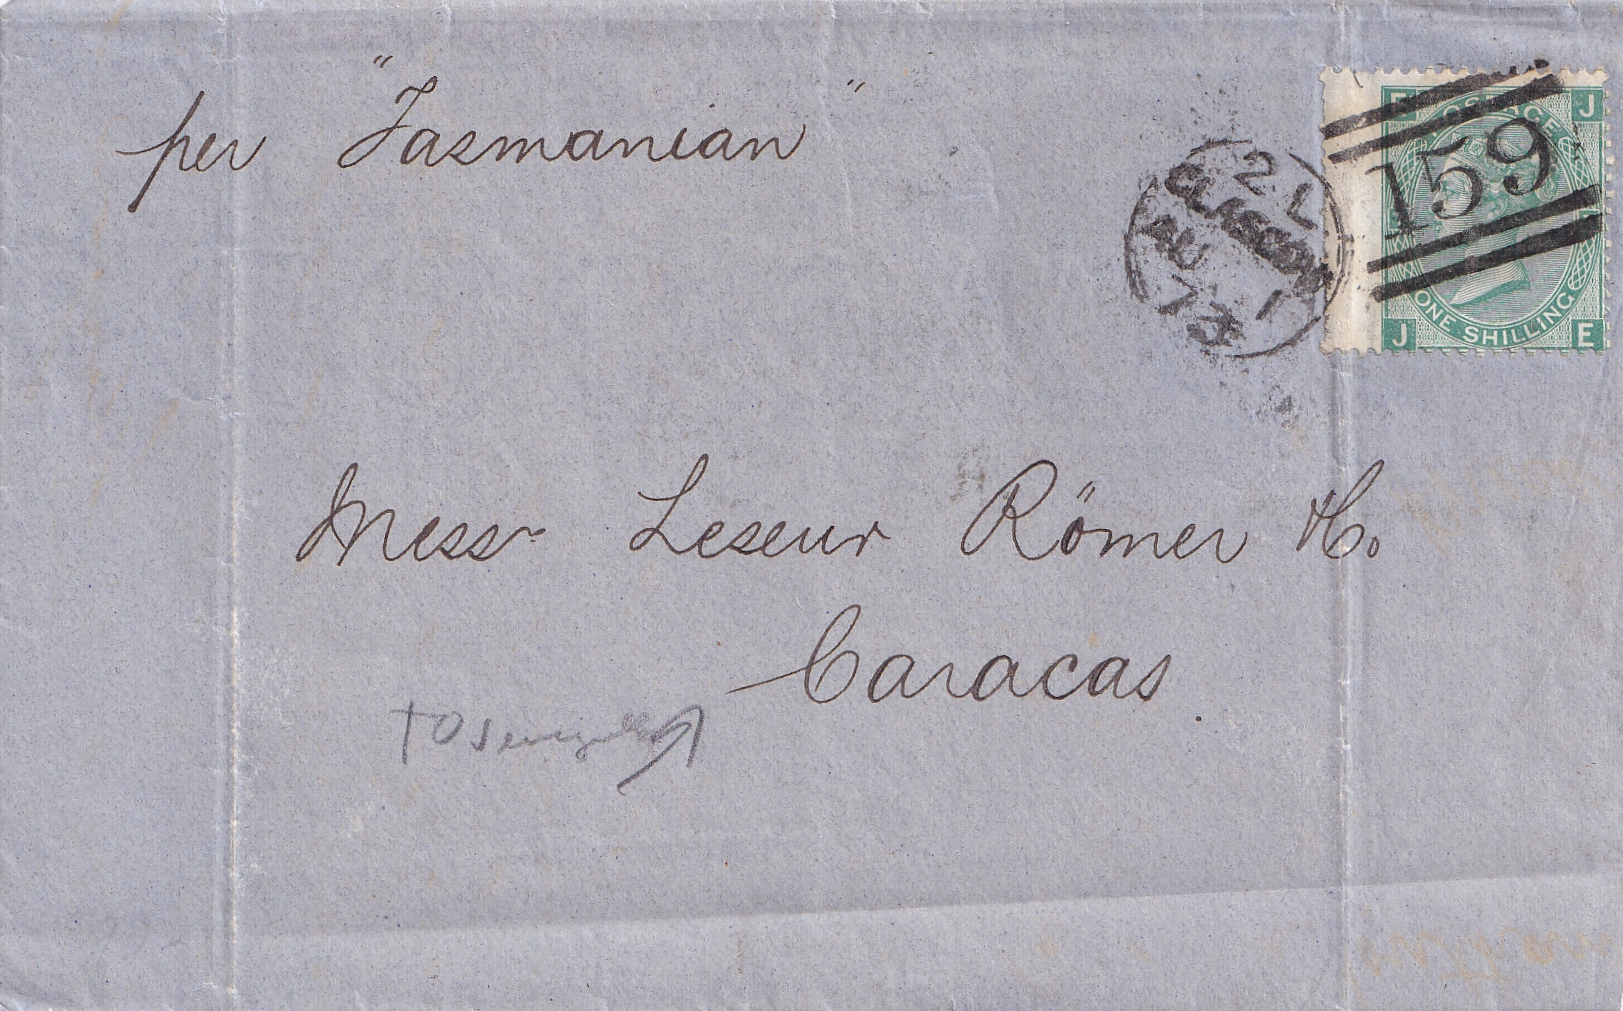 per "Tasmanian"
2 L
GLASGOW
AU 1
73
159
E J
POSTAGE
ONE SHILLING
J E
Messrs Leseur Römer & Co.
Caracas.